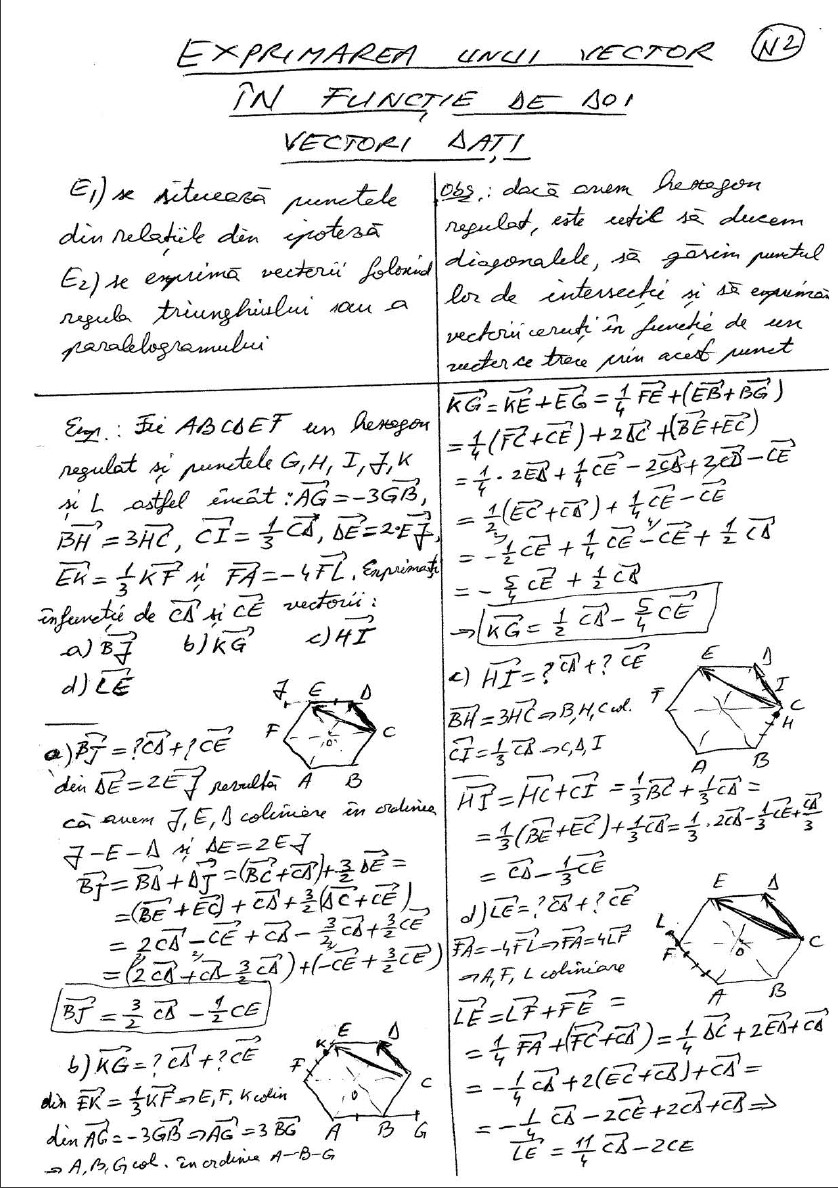 EXPRIMAREA UNUI VECTOR
N2
ÎN FUNCȚIE DE DOI
VECTORI DAȚI
E1) se situează punctele
din relațiile din ipoteză
E2) se exprimă vectorii folosind
regula triunghiului sau a
paralelogramului
Obs.: dacă avem hexagon
regulat, este util să ducem
diagonalele, să găsim punctul
lor de intersecție și să exprimăm
vectorii ceruți în funcție de un
vector ce trece prin acest punct
Exp.: Fie ABCDEF un hexagon
regulat și punctele G, H, I, J, K
și L astfel încât: AG⃗ = -3GB⃗,
BH⃗ = 3HC⃗, CI⃗ = 1/3 CD⃗, DE⃗ = 2·EJ⃗,
EK⃗ = 1/3 KF⃗ și FA⃗ = -4FL⃗. Exprimați
în funcție de CD⃗ și CE⃗ vectorii:
a) BJ⃗ b) KG⃗ c) HI⃗
d) LE⃗
J E D
F O C
A B
a) BJ⃗ = ?CD⃗ + ?CE⃗
din DE⃗ = 2EJ⃗ rezultă
că avem J, E, D coliniare în ordinea
J-E-D și DE = 2EJ
BJ⃗ = BD⃗ + DJ⃗ = (BC⃗ + CD⃗) + 3/2 DE⃗ =
= (BE⃗ + EC⃗) + CD⃗ + 3/2 (DC⃗ + CE⃗)
= 2CD⃗ - CE⃗ + CD⃗ - 3/2 CD⃗ + 3/2 CE⃗
= (2CD⃗ + CD⃗ - 3/2 CD⃗) + (-CE⃗ + 3/2 CE⃗)
BJ⃗ = 3/2 CD⃗ - 1/2 CE
b) KG⃗ = ?CD⃗ + ?CE⃗
din EK⃗ = 1/3 KF⃗ ⇒ E, F, K colin
din AG⃗ = -3GB⃗ ⇒ AG⃗ = 3BG⃗
⇒ A, B, G col. în ordinea A-B-G
K E D
F O C
A B G
KG⃗ = KE⃗ + EG⃗ = 1/4 FE⃗ + (EB⃗ + BG⃗)
= 1/4 (FC⃗ + CE⃗) + 2DC⃗ + (BE⃗ + EC⃗)
= 1/4 · 2ED⃗ + 1/4 CE⃗ - 2CD⃗ + 2CD⃗ - CE⃗
= 1/2 (EC⃗ + CD⃗) + 1/4 CE⃗ - CE⃗
= -1/2 CE⃗ + 1/4 CE⃗ - CE⃗ + 1/2 CD⃗
= -5/4 CE⃗ + 1/2 CD⃗
⇒ KG⃗ = 1/2 CD⃗ - 5/4 CE⃗
c) HI⃗ = ?CD⃗ + ?CE⃗
BH⃗ = 3HC⃗ ⇒ B, H, C col.
CI⃗ = 1/3 CD⃗ ⇒ C, D, I
E D
F I C
H
A B
HI⃗ = HC⃗ + CI⃗ = 1/3 BC⃗ + 1/3 CD⃗ =
= 1/3 (BE⃗ + EC⃗) + 1/3 CD⃗ = 1/3 · 2CD⃗ - 1/3 CE⃗ + CD⃗/3
= CD⃗ - 1/3 CE⃗
d) LE⃗ = ?CD⃗ + ?CE⃗
FA⃗ = -4FL⃗ ⇒ FA⃗ = 4LF⃗
⇒ A, F, L coliniare
E D
L
F O C
A B
LE⃗ = LF⃗ + FE⃗ =
= 1/4 FA⃗ + (FC⃗ + CD⃗) = 1/4 DC⃗ + 2ED⃗ + CD⃗
= -1/4 CD⃗ + 2(EC⃗ + CD⃗) + CD⃗ =
= -1/4 CD⃗ - 2CE⃗ + 2CD⃗ + CD⃗ ⇒
LE⃗ = 11/4 CD⃗ - 2CE